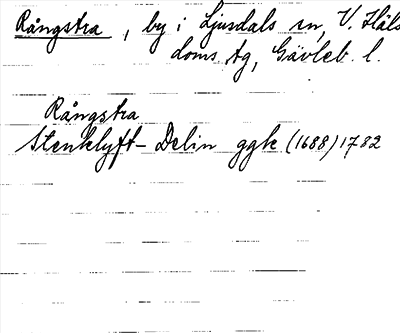 Rångstra, by i Ljusdals sn, V. Häls
doms tg, Gävleb. l.
Rångstra
Stenklyft - Delin ggk (1688) 1782